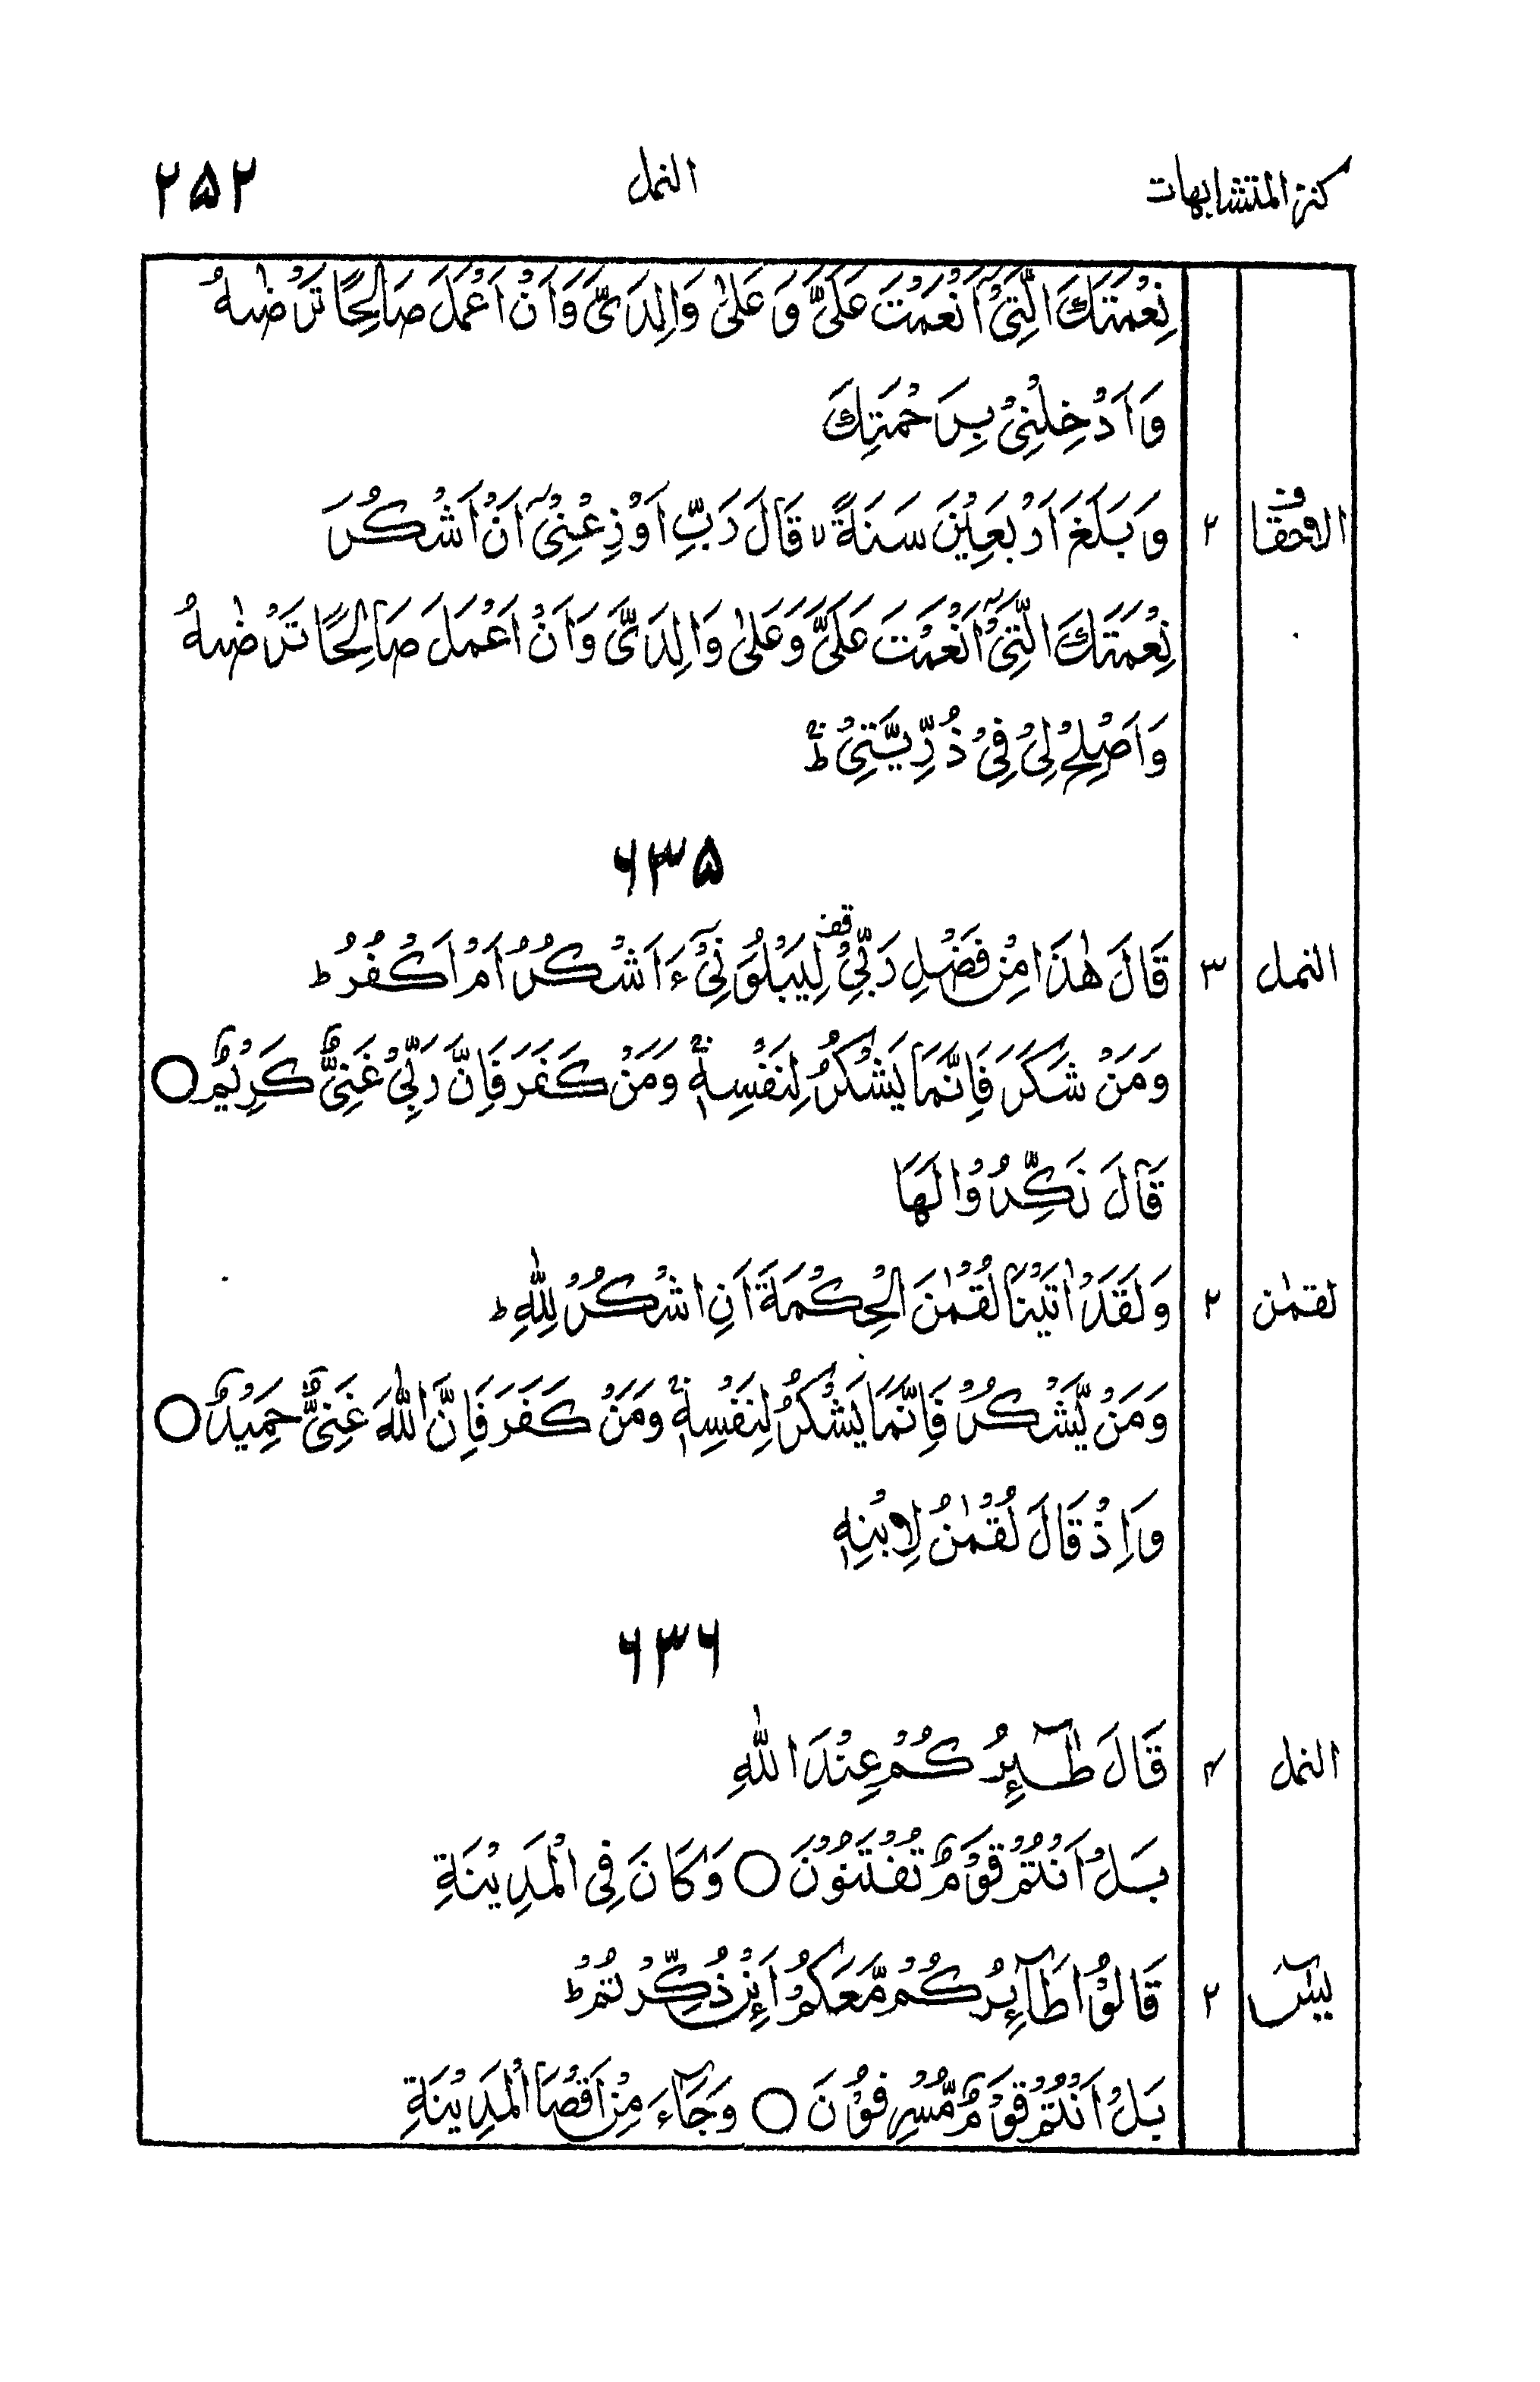 كنز المتشابهات النمل ۲۵۲
نِعْمَتَكَ الَّتِيْٓ اَنْعَمْتَ عَلَيَّ وَ عَلٰى وَالِدَيَّ وَ اَنْ اَعْمَلَ صَالِحًا تَرْضٰىهُ
وَ اَدْخِلْنِيْ بِرَحْمَتِكَ
الاحقاف ۲ وَ بَلَغَ اَرْبَعِيْنَ سَنَةً ۙ قَالَ رَبِّ اَوْزِعْنِيْٓ اَنْ اَشْكُرَ
نِعْمَتَكَ الَّتِيْٓ اَنْعَمْتَ عَلَيَّ وَ عَلٰى وَالِدَيَّ وَ اَنْ اَعْمَلَ صَالِحًا تَرْضٰىهُ
وَ اَصْلِحْ لِيْ فِيْ ذُرِّيَّتِيْ ؕۚ
۶۳۵
النمل ۳ قَالَ هٰذَا مِنْ فَضْلِ رَبِّيْ قف لِيَبْلُوَنِيْٓ ءَاَشْكُرُ اَمْ اَكْفُرُ ؕ
وَمَنْ شَكَرَ فَاِنَّمَا يَشْكُرُ لِنَفْسِهٖ ۚ وَمَنْ كَفَرَ فَاِنَّ رَبِّيْ غَنِيٌّ كَرِيْمٌ ○
قَالَ نَكِّرُوْا لَهَا
لقمٰن ۲ وَ لَقَدْ اٰتَيْنَا لُقْمٰنَ الْحِكْمَةَ اَنِ اشْكُرْ لِلّٰهِ ؕ
وَمَنْ يَّشْكُرْ فَاِنَّمَا يَشْكُرُ لِنَفْسِهٖ ۚ وَمَنْ كَفَرَ فَاِنَّ اللّٰهَ غَنِيٌّ حَمِيْدٌ ○
وَ اِذْ قَالَ لُقْمٰنُ لِابْنِهٖ
۶۳۶
النمل ۴ قَالَ طٰٓئِرُكُمْ عِنْدَ اللّٰهِ
بَلْ اَنْتُمْ قَوْمٌ تُفْتَنُوْنَ ○ وَ كَانَ فِى الْمَدِيْنَةِ
يٰسٓ ۲ قَالُوْا طَآئِرُكُمْ مَّعَكُمْ اَئِنْ ذُكِّرْتُمْ ؕ
بَلْ اَنْتُمْ قَوْمٌ مُّسْرِفُوْنَ ○ وَ جَآءَ مِنْ اَقْصَا الْمَدِيْنَةِ